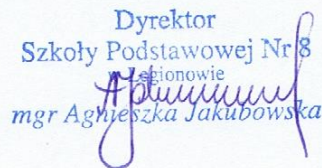 Dyrektor
Szkoły Podstawowej Nr 8
w Legionowie
mgr Agnieszka Jakubowska